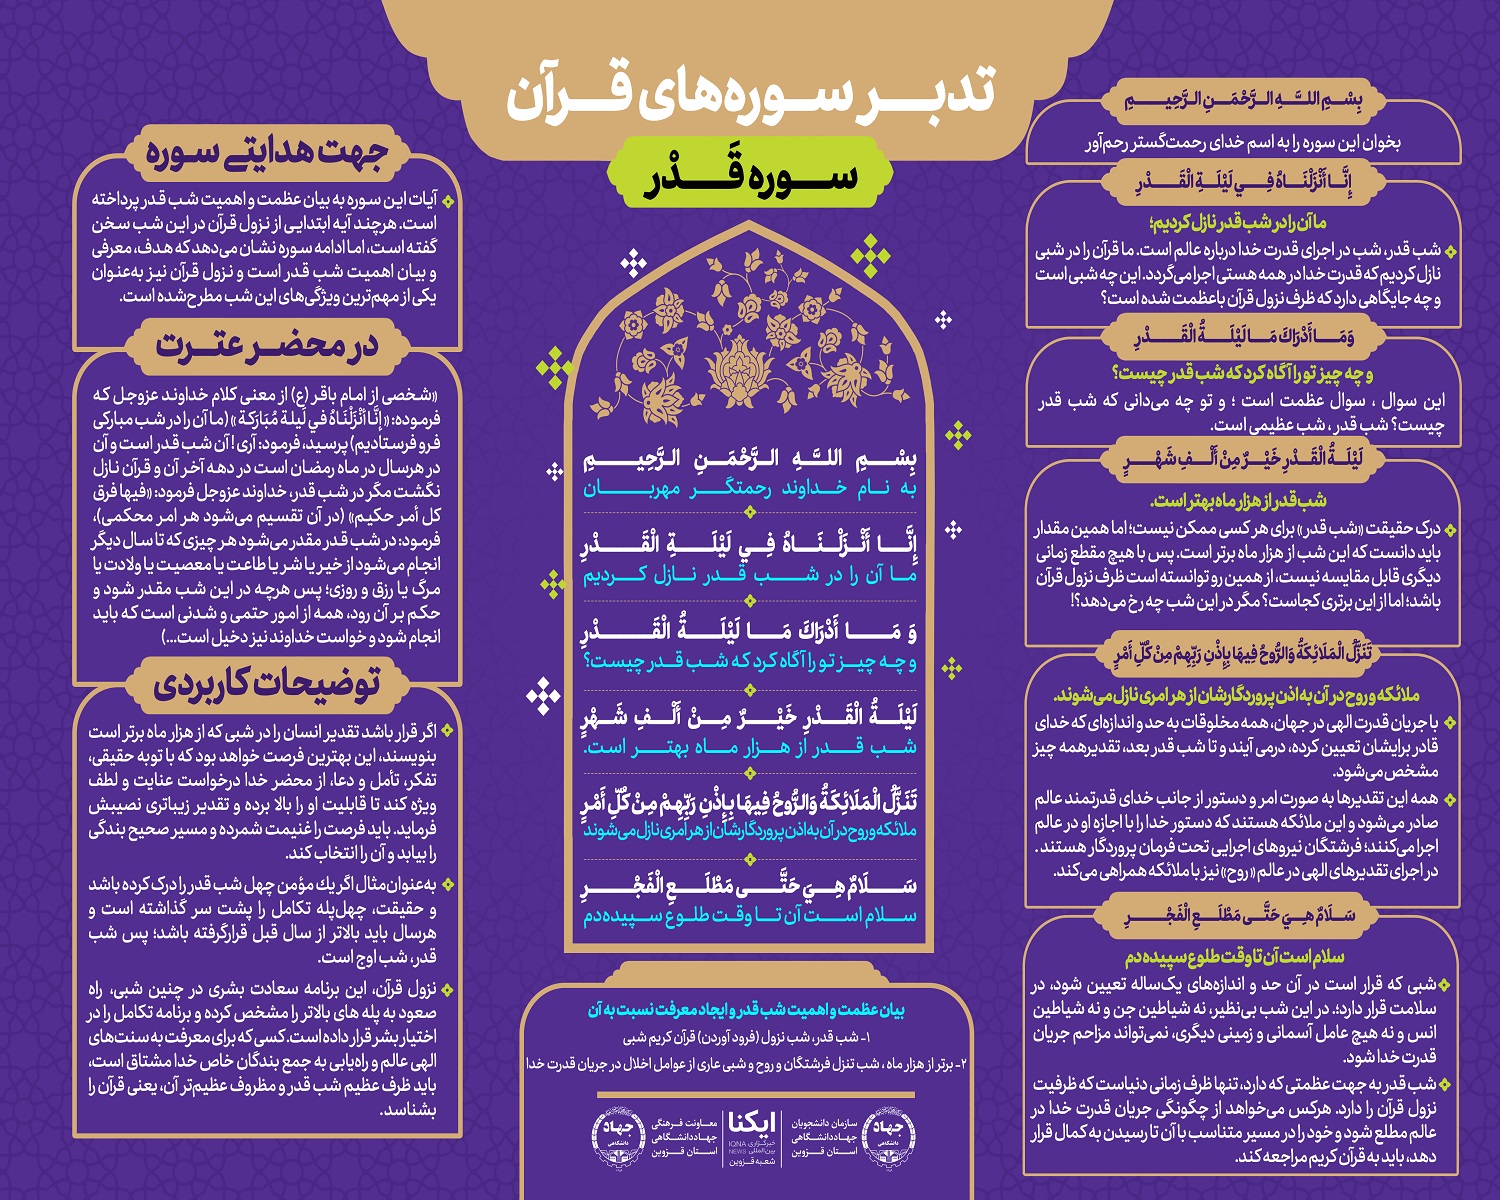 تدبـر سـوره‌های قـرآن
سـوره قَـدْر
بِسْمِ اللَّهِ الرَّحْمَنِ الرَّحِيمِ
بخوان این سوره را به اسم خدای رحمت‌گستر رحم‌آور
إِنَّا أَنْزَلْنَاهُ فِي لَيْلَةِ الْقَدْرِ
ما آن را در شب قدر نازل کردیم؛
شب قدر، شب در اجرای قدرت خدا درباره عالم است. ما قرآن را در شبی
نازل کردیم که قدرت خدا در همه هستی اجرا می‌گردد. این چه شبی است
و چه جایگاهی دارد که ظرف نزول قرآن باعظمت شده است؟
وَمَا أَدْرَاكَ مَا لَيْلَةُ الْقَدْرِ
و چه چیز تو را آگاه کرد که شب قدر چیست؟
این سوال ، سوال عظمت است ؛ و تو چه می‌دانی که شب قدر
چیست؟ شب قدر ، شب عظیمی است.
لَيْلَةُ الْقَدْرِ خَيْرٌ مِنْ أَلْفِ شَهْرٍ
شب قدر از هزار ماه بهتر است.
درک حقیقت «شب قدر» برای هر کسی ممکن نیست؛ اما همین مقدار
باید دانست که این شب از هزار ماه برتر است. پس با هیچ مقطع زمانی
دیگری قابل مقایسه نیست، از همین رو توانسته است ظرف نزول قرآن
باشد؛ اما از این برتری کجاست؟ مگر در این شب چه رخ می‌دهد؟!
تَنَزَّلُ الْمَلَائِكَةُ وَالرُّوحُ فِيهَا بِإِذْنِ رَبِّهِمْ مِنْ كُلِّ أَمْرٍ
ملائکه و روح در آن به اذن پروردگارشان از هر امری نازل می‌شوند.
با جریان قدرت الهی در جهان، همه مخلوقات به حد و اندازه‌ای که خدای
قادر برایشان تعیین کرده، درمی آیند و تا شب قدر بعد، تقدیر همه چیز
مشخص می‌شود.
همه این تقدیرها به صورت امر و دستور از جانب خدای قدرتمند عالم
صادر می‌شود و این ملائکه هستند که دستور خدا را با اجازه او در عالم
اجرا می‌کنند؛ فرشتگان نیروهای اجرایی تحت فرمان پروردگار هستند .
در اجرای تقدیرهای الهی در عالم « روح» نیز با ملائکه همراهی می‌کند.
سَلَامٌ هِيَ حَتَّى مَطْلَعِ الْفَجْرِ
سلام است آن تا وقت طلوع سپیده دم
شبی که قرار است در آن حد و اندازه‌های یک‌ساله تعیین شود، در
سلامت قرار دارد؛. در این شب بی‌نظیر، نه شیاطین جن و نه شیاطین
انس و نه هیچ عامل آسمانی و زمینی دیگری، نمی‌تواند مزاحم جریان
قدرت خدا شود.
شب قدر به جهت عظمتی که دارد، تنها ظرف زمانی دنیاست که ظرفیت
نزول قرآن را دارد. هرکس می‌خواهد از چگونگی جریان قدرت خدا در
عالم مطلع شود و خود را در مسیر متناسب با آن تا رسیدن به کمال قرار
دهد، باید به قرآن کریم مراجعه کند.
بِسْمِ اللَّهِ الرَّحْمَنِ الرَّحِيمِ
به نام خداوند رحمتگر مهربان
إِنَّا أَنْزَلْنَاهُ فِي لَيْلَةِ الْقَدْرِ
ما آن را در شب قدر نازل کردیم
وَ مَا أَدْرَاكَ مَا لَيْلَةُ الْقَدْرِ
و چه چیز تو را آگاه کرد که شب قدر چیست؟
لَيْلَةُ الْقَدْرِ خَيْرٌ مِنْ أَلْفِ شَهْرٍ
شب قدر از هزار ماه بهتر است.
تَنَزَّلُ الْمَلَائِكَةُ وَالرُّوحُ فِيهَا بِإِذْنِ رَبِّهِمْ مِنْ كُلِّ أَمْرٍ
ملائکه و روح در آن به اذن پروردگارشان از هر امری نازل می‌شوند
سَلَامٌ هِيَ حَتَّى مَطْلَعِ الْفَجْرِ
سلام است آن تا وقت طلوع سپیده دم
بیان عظمت و اهمیت شب قدر و ایجاد معرفت نسبت به آن
۱- شب قدر، شب نزول (فرود آوردن) قرآن کریم شبی
۲- برتر از هزار ماه ، شب تنزل فرشتگان و روح و شبی عاری از عوامل اخلال در جریان قدرت خدا
جهاد
دانشگاهی
سازمان دانشجویان
جهاددانشگاهی
استان قزوین
ایکنا
IQNA
NEWS
خبرگزاری
بین‌المللی
شعبه قزوین
معاونت فرهنگی
جهاددانشگاهی
استان قزوین
جهاد
دانشگاهی
جهت هدایتے سوره
آیات این سوره به بیان عظمت و اهمیت شب قدر پرداخته
است. هرچند آیه ابتدایی از نزول قرآن در این شب سخن
گفته است، اما ادامه سوره نشان می‌دهد که هدف، معرفی
و بیان اهمیت شب قدر است و نزول قرآن نیز به‌عنوان
یکی از مهم‌ترین ویژگی‌های این شب مطرح‌شده است.
در محضـر عتـرت
«شخصی از امام باقر (ع) از معنی کلام خداوند عزوجل که
فرموده: « إنَّا أنْزَلْنَاهُ في لَيلة مُبَارَكة » (ما آن را در شب مبارکی
فرو فرستادیم) پرسید، فرمود: آری ! آن شب قدر است و آن
در هرسال در ماه رمضان است در دهه آخر آن و قرآن نازل
نگشت مگر در شب قدر، خداوند عزوجل فرمود: «فیها فرق
کل أمر حکیم» (در آن تقسیم می‌شود هر امر محکمی)،
فرمود: در شب قدر مقدر می‌شود هر چیزی که تا سال دیگر
انجام می‌شود از خیر یا شر یا طاعت یا معصیت یا ولادت یا
مرگ یا رزق و روزی؛ پس هرچه در این شب مقدر شود و
حکم بر آن رود، همه از امور حتمی و شدنی است که باید
انجام شود و خواست خداوند نیز دخیل است...)
توضیحات کاربردی
اگر قرار باشد تقدیر انسان را در شبی که از هزار ماه برتر است
بنویسند، این بهترین فرصت خواهد بود که با توبه حقیقی،
تفکر، تأمل و دعا، از محضر خدا درخواست عنایت و لطف
ویژه کند تا قابلیت او را بالا برده و تقدیر زیباتری نصیبش
فرماید. باید فرصت را غنیمت شمرده و مسیر صحیح بندگی
را بیابد و آن را انتخاب کند.
به‌عنوان‌مثال اگر یك مؤمن چهل شب قدر را درک کرده باشد
و حقیقت، چهل‌پله تکامل را پشت سر گذاشته است و
هرسال باید بالاتر از سال قبل قرارگرفته باشد؛ پس شب
قدر، شب اوج است.
نزول قرآن، این برنامه سعادت بشری در چنین شبی، راه
صعود به پله های بالاتر را مشخص کرده و برنامه تکامل را در
اختیار بشر قرار داده است. کسی که برای معرفت به سنت‌های
الهی عالم و راه‌یابی به جمع بندگان خاص خدا مشتاق است،
باید ظرف عظیم شب قدر و مظروف عظیم‌تر آن، یعنی قرآن را
بشناسد.